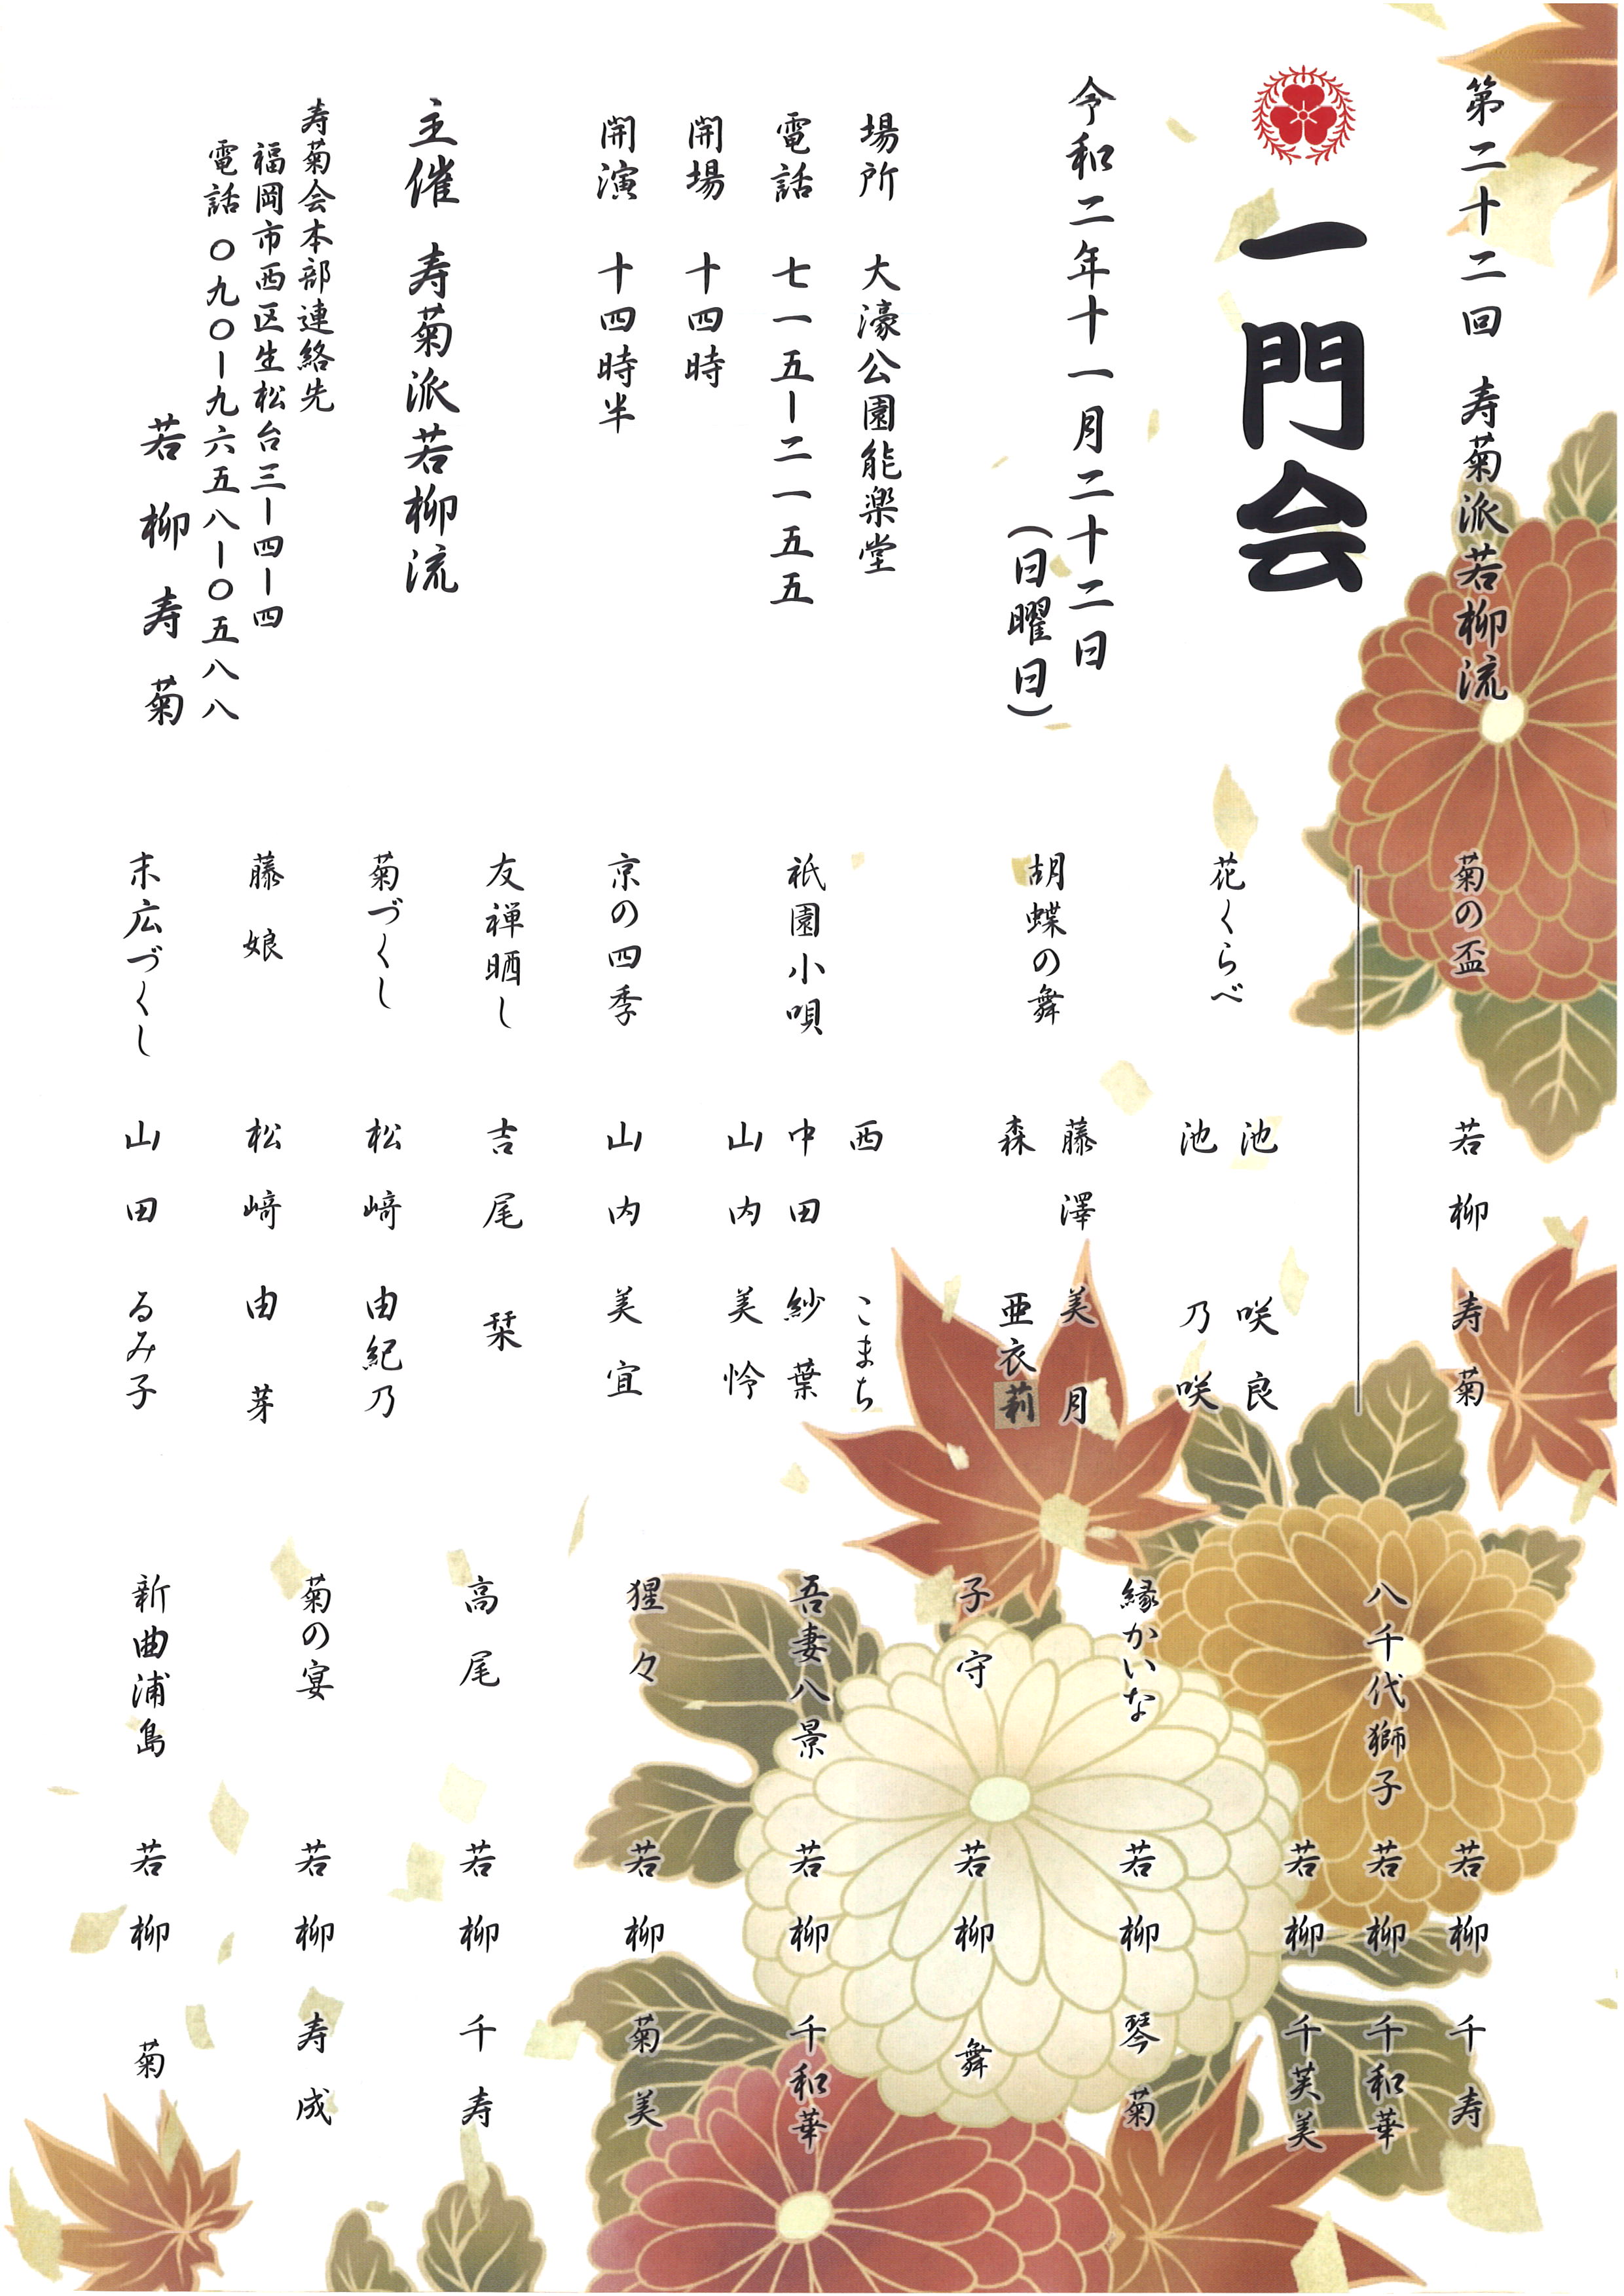 第二十二回 寿菊派若柳流
一門会
令和二年十一月二十二日
(日曜日)
場所 大濠公園能楽堂
電話 七一五ー二一五五
開場 十四時
開演 十四時半
主催 寿菊派若柳流
寿菊会本部連絡先
福岡市西区生松台三ー四ー四
電話 〇九〇ー九六五八ー〇五八八
若柳寿菊
菊の盃 若柳寿菊
花くらべ 池咲良
池乃咲
胡蝶の舞 藤澤美月
森亜衣莉
西こまち
祇園小唄 中田紗葉
山内美怜
京の四季 山内美宜
友禅晒し 吉尾栞
菊づくし 松﨑由紀乃
藤娘 松﨑由芽
末広づくし 山田るみ子
若柳千寿
八千代獅子 若柳千和華
若柳千芙美
縁かいな 若柳琴菊
子守 若柳舞
吾妻八景 若柳千和華
猩々 若柳菊美
高尾 若柳千寿
菊の宴 若柳寿成
新曲浦島 若柳菊